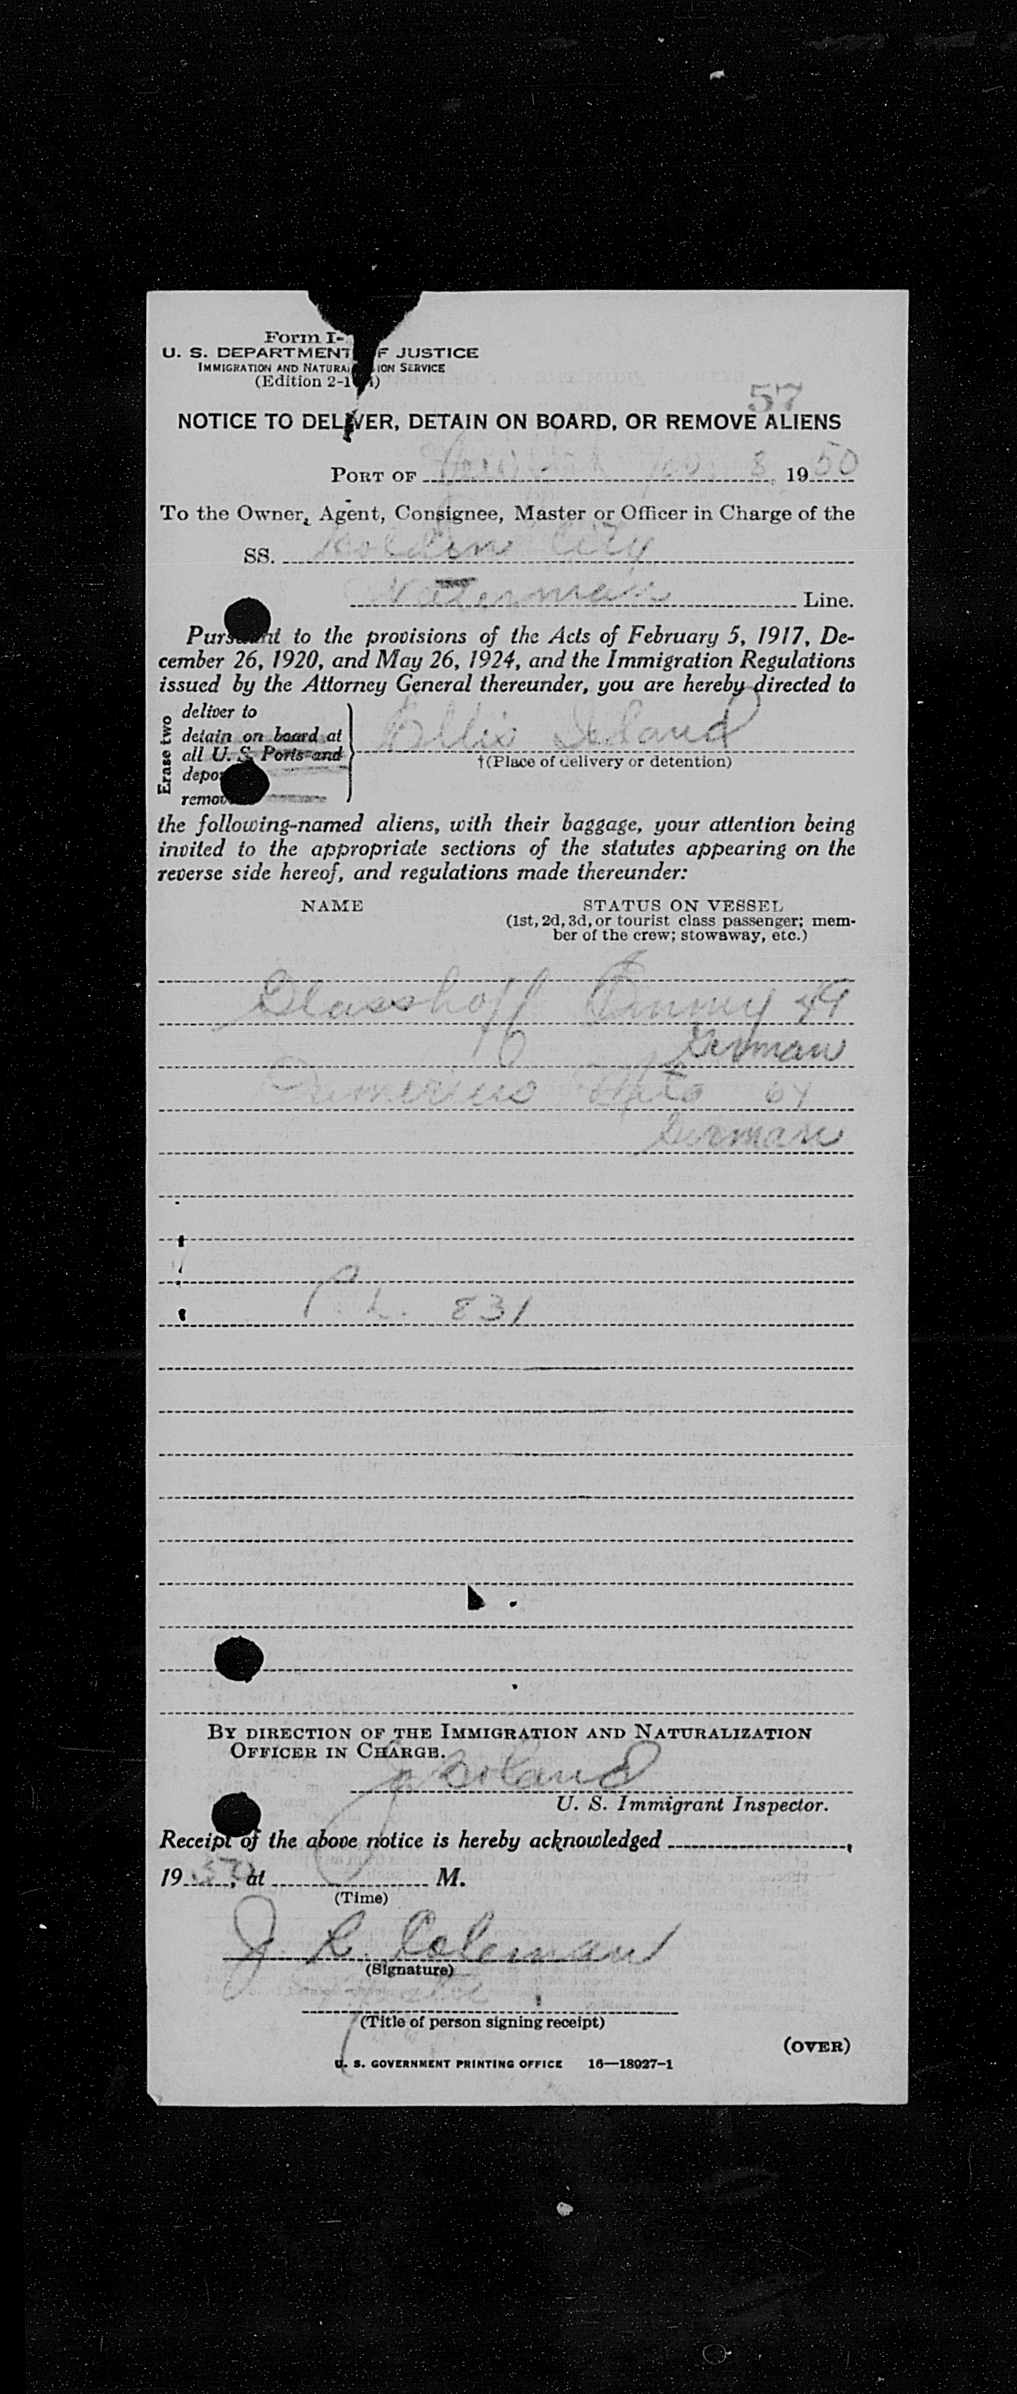 Form I-
U. S. DEPARTMENT OF JUSTICE
IMMIGRATION AND NATURALIZATION SERVICE
(Edition 2-1
57
NOTICE TO DELIVER, DETAIN ON BOARD, OR REMOVE ALIENS
PORT OF New York Nov. 8, 1950
To the Owner, Agent, Consignee, Master or Officer in Charge of the
SS. Golden City
Waterman Line.
Pursuant to the provisions of the Acts of February 5, 1917, De-
cember 26, 1920, and May 26, 1924, and the Immigration Regulations
issued by the Attorney General thereunder, you are hereby directed to
Erase two
deliver to
detain on board at
all U. S. Ports and
depo
remov
Ellis Island
†(Place of delivery or detention)
the following-named aliens, with their baggage, your attention being
invited to the appropriate sections of the statutes appearing on the
reverse side hereof, and regulations made thereunder:
NAME STATUS ON VESSEL
(1st, 2d, 3d, or tourist class passenger; mem-
ber of the crew; stowaway, etc.)
Glasshoff 49
German
64
German
831
BY DIRECTION OF THE IMMIGRATION AND NATURALIZATION
OFFICER IN CHARGE.
Boland
U. S. Immigrant Inspector.
Receipt of the above notice is hereby acknowledged
1950, at M.
(Time)
J. R. Coleman
(Signature)
(Title of person signing receipt)
(OVER)
U. S. GOVERNMENT PRINTING OFFICE 16—18027-1